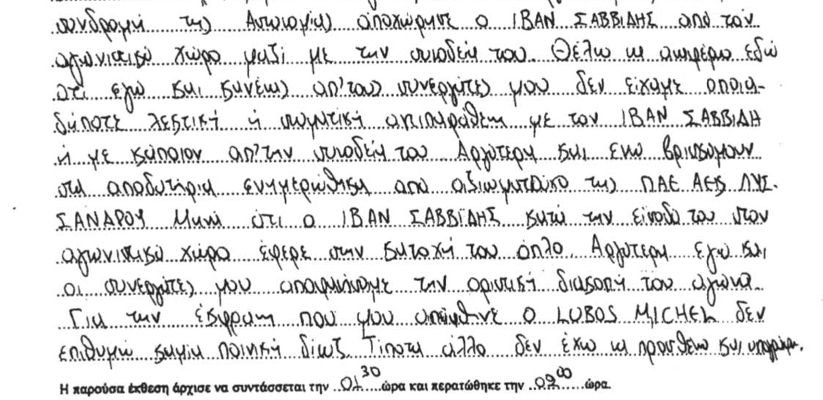 συνδρομή της Αστυνομίας αποχώρησε ο ΙΒΑΝ ΣΑΒΒΙΔΗΣ από τον
αγωνιστικό χώρο μαζί με την συνοδεία του. Θέλω να αναφέρω εδώ
ότι εγώ και κανένας απ'τους συνεργάτες μου δεν είχαμε οποια-
δήποτε λεκτική ή σωματική αντιπαράθεση με τον ΙΒΑΝ ΣΑΒΒΙΔΗ
ή με κάποιον απ'την συνοδεία του. Αργότερα και ενώ βρισκόμουν
στα αποδυτήρια ενημερώθηκα από αξιωματούχο της ΠΑΕ ΑΕΚ ΛΥΣ-
ΣΑΝΔΡΟΥ Μηνά ότι ο ΙΒΑΝ ΣΑΒΒΙΔΗΣ κατά την είσοδό του στον
αγωνιστικό χώρο έφερε στην κατοχή του όπλο. Αργότερα εγώ και
οι συνεργάτες μου αποφασίσαμε την οριστική διακοπή του αγώνα.
Για την έκφραση που μου απηύθυνε ο LUBOS MICHEL δεν
επιθυμώ καμία ποινική δίωξη Τίποτα άλλο δεν έχω να προσθέσω και υπογράφω.
Η παρούσα έκθεση άρχισε να συντάσσεται την 01 30 ώρα και περατώθηκε την 00 ώρα.